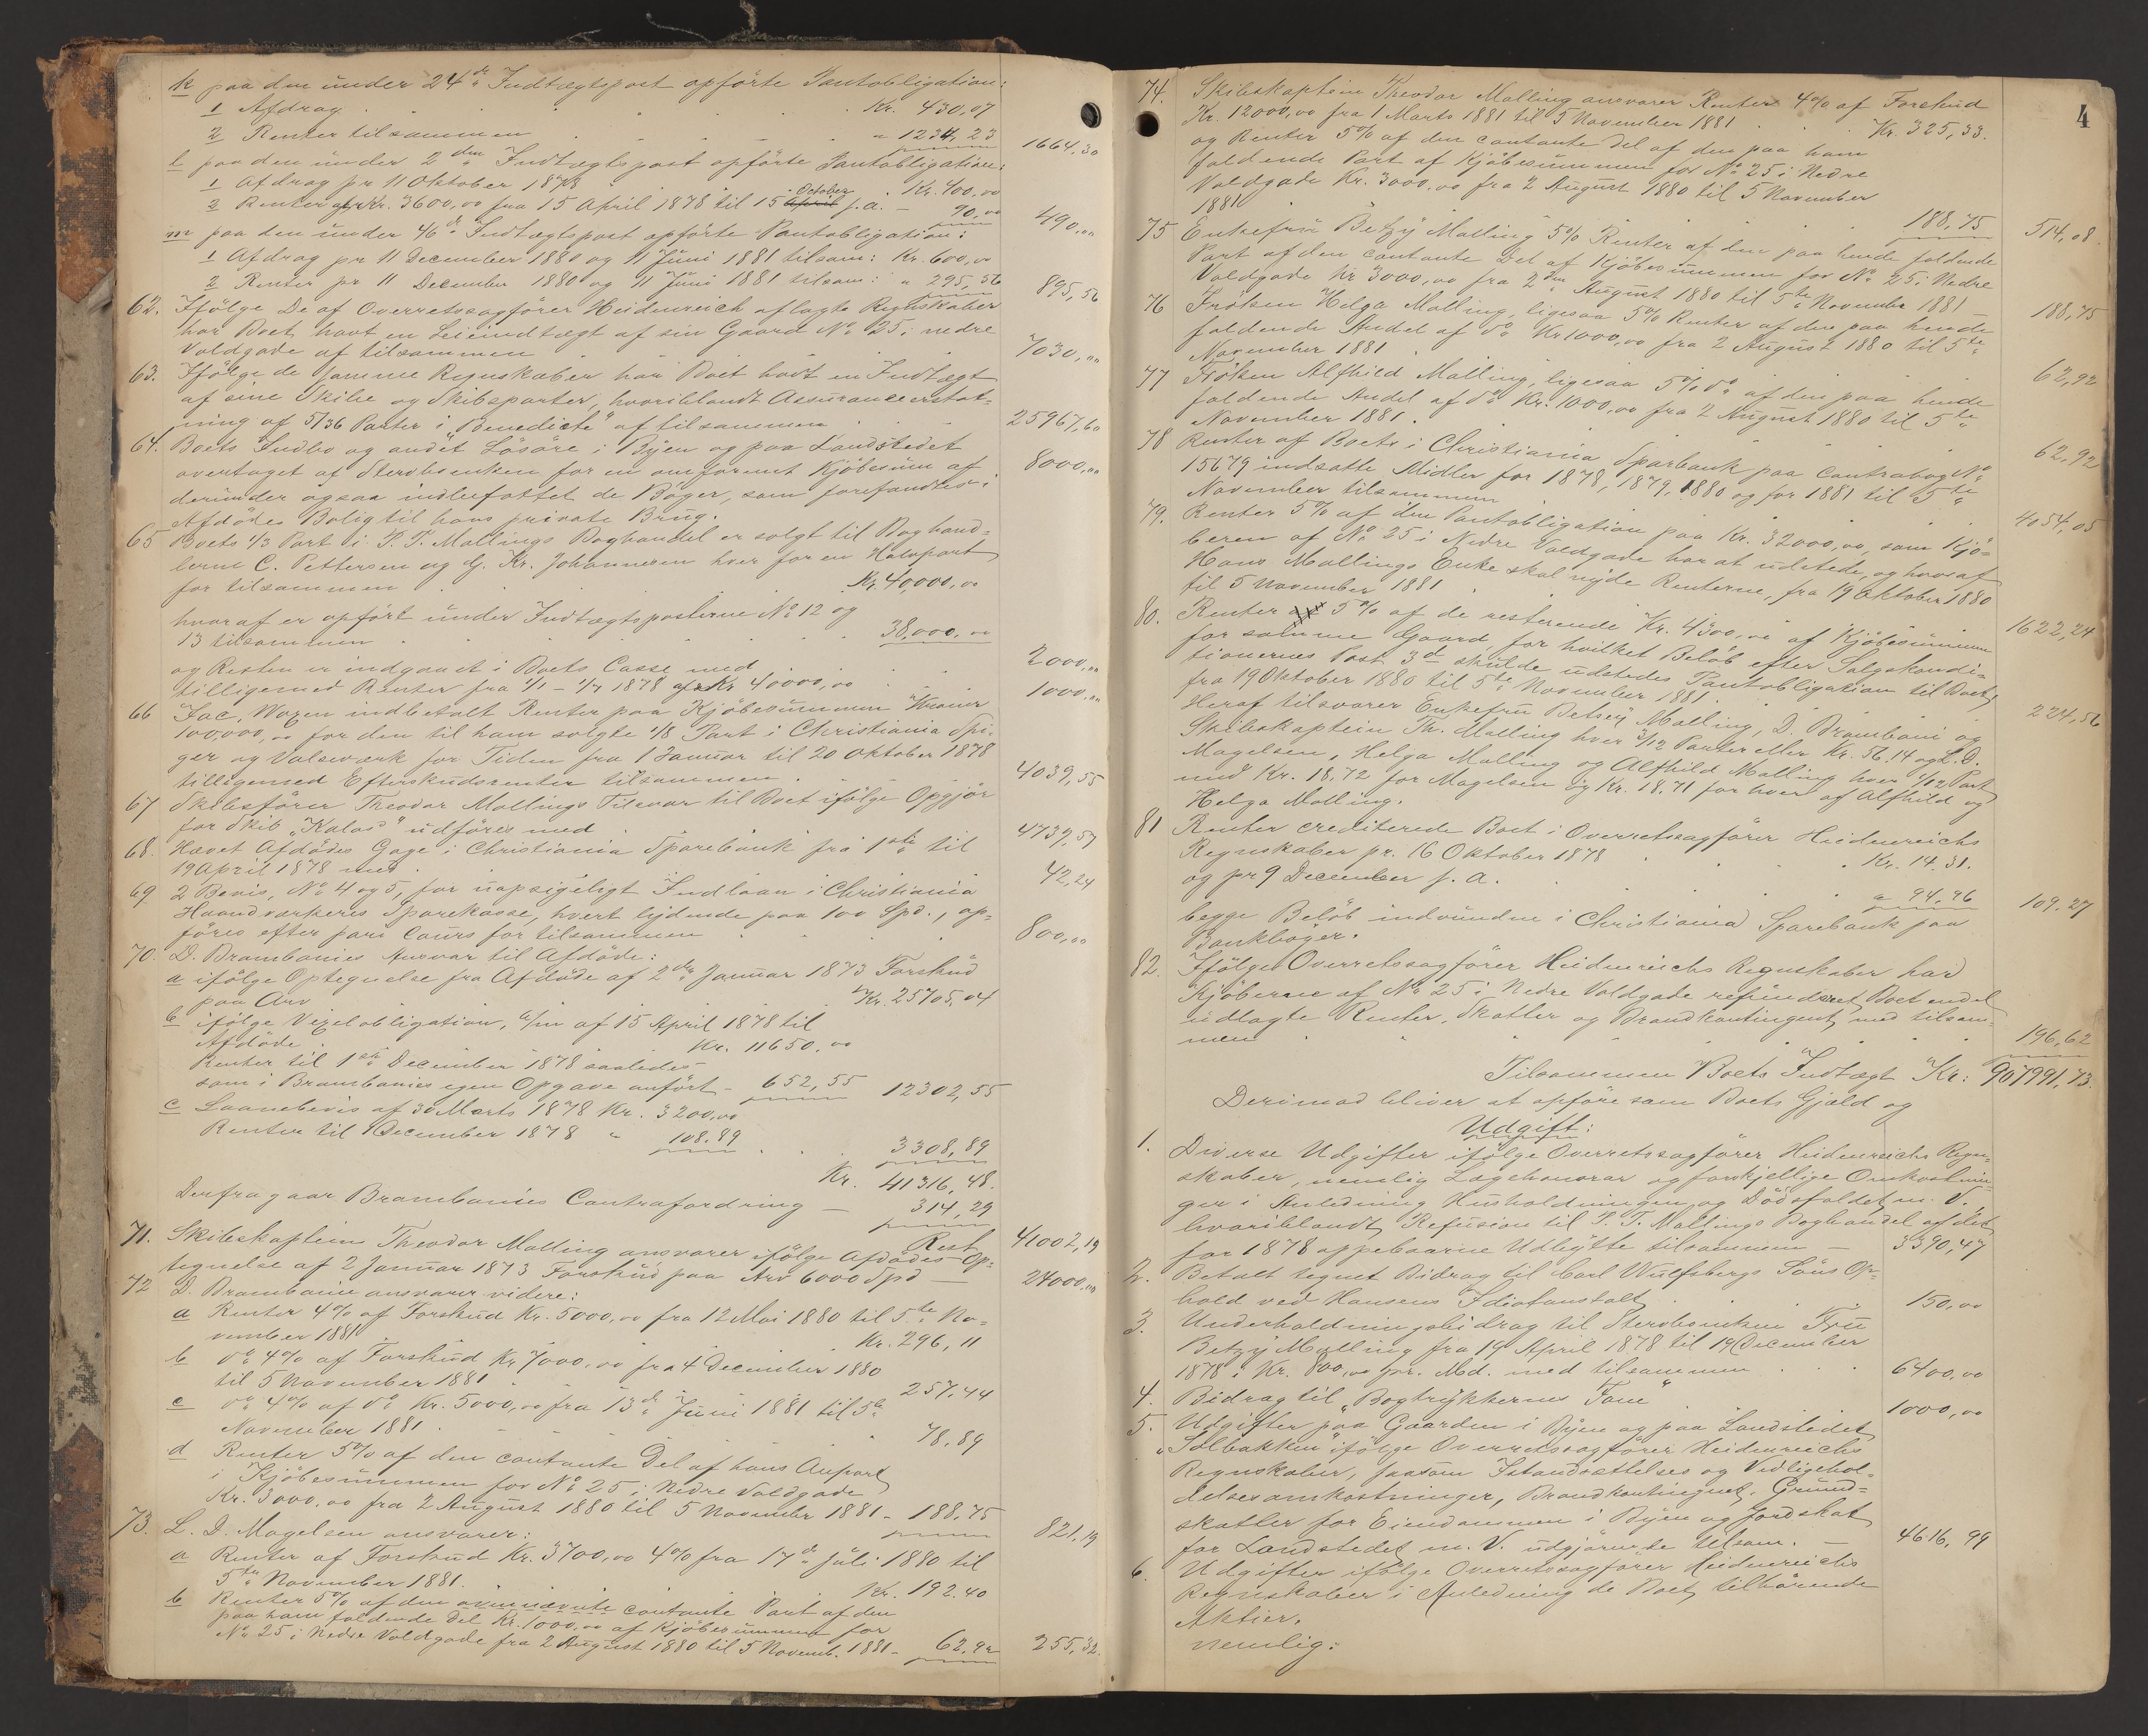 k paa den under 24de Indtægtspost opförte Pantobligation:
1 Afdrag . . . Kr. 430,07
2 Renter tilsammen . . . " 1234,23 1664,30
l paa den under 2den Indtægtspost opförte Pantobligation:
1 Afdrag pr 11 Oktober 1878 . . Kr. 400,00
2 Renter af Kr. 3600,00 fra 15 April 1878 til 15 April October s. a. - 90,00 490,00
m paa den under 46de Indtægtspost opförte Pantobligation:
1 Afdrag pr 11 December 1880 og 11 Juni 1881 tilsam: Kr. 600,00
2 Renter pr 11 December 1880 og 11 Juni 1881 tilsam: " 295,56 895,56
62. Ifölge De af Overretssagförer Heidenreich aflagte Regnskaber
har Boet havt en Leieindtægt af sin Gaard No 25 i nedre
Voldgade af tilsammen 7030,00
63. Ifölge de samme Regnskaber har Boet havt en Indtægt
af sine Skibe og Skibsparter, hvoriblandt Assuranceerstat=
ning af 5/36 Parter i "Benedicte" af tilsammen 25967,60
64. Boets Indbo og andet Lösöre i Byen og paa Landstedet
overtaget af Sterboenken for en omforent Kjöbesum af 8000,00
derunder ogsaa indbefattet de Böger, som forefandtes i
Afdödes Bolig til hans private Brug.
65 Boets 1/3 Part i P. T. Mallings Boghandel er solgt til Boghand=
lerne C. Pettersen og G. Kr. Johannesen hver for en Halvpart
for tilsammen . . Kr. 40,000,00
hvoraf er opfört under Indtægtsposterne No 12 og
13 tilsammen . . . 38,000,00
og Resten er indgaaet i Boets Casse med 2000,00
tilligemed Renter fra 1/1 - 1/7 1878 af Kr 40000,00 . . 1000,00
66 Jac. Woxen indbetalt Renter paa Kjöbesummen Kroner
100,000,00 for den til ham solgte 1/8 Part i Christiania Spi=
ger og Valseværk for Tiden fra 1 Januar til 20 Oktober 1878
tilligemed Efterskudsrenter tilsammen . . 4039,55
67 Skibsförer Theodor Mallings Tilsvar til Boet ifölge Opgjör
for Skib "Kalos" udföres med . . 4739,57
68. Hævet Afdödes Gage i Christiania Sparebank fra 1ste til
19 April 1878 med . . 42,24
69 2 Bevis, No 4 og 5, for uopsigeligt Indlaan i Christiania
Haandværkeres Sparekasse, hvert lydende paa 100 Spd., op=
föres efter pari Cours for tilsammen . . 800,00
70. D. Brambanies Ansvar til Afdöde:
a ifölge Optegnelse fra Afdöde af 2den Januar 1873 Forskud
paa Arv Kr. 25705,04
b ifölge Vexelobligation, af 15 April 1878 til
Afdöde . . Kr. 11650,00
Renter til 1ste December 1878 saaledes
som i Brambanies egen Opgave anfört - 652,55 12302,55
c Laanebevis af 30 Marts 1878 Kr. 3200,00
Renter til December 1878 " 108.89 . . 3308,89
Kr. 41316,48.
Derfra gaar Brambanies Contrafordring — 314,29
Rest 41002,19
71. Skibskaptein Theodor Malling ansvarer ifölge Afdödes Op=
tegnelse af 2 Januar 1873 Forskud paa Arv 6000 Spd — 24000,00
72 D. Brambanie ansvarer videre:
a Renter 4% af Forskud Kr. 5000,00 fra 12 Mai 1880 til 5te No=
vember 1881 Kr. 296,11
b do 4% af Forskud Kr 7000,00 fra 4 December 1880
til 5 November 1881 257,44
c do 4% af do Kr. 5000,00 fra 13de Juni 1881 til 5te
November 1881 . . 78,89
d Renter 5% af den contante Del af hans Anpart
i Kjöbesummen for No 25 i Nedre Voldgade
Kr. 3000,00 fra 2 August 1880 til 5 November 1881 - 188,75 821,19
73. L. D. Magelsen ansvarer:
a Renter af Forskud Kr. 3700,00 4% fra 17de Juli 1880 til
5te November 1881. Kr. 192.40
b Renter 5% af den contante Part af den
paa ham faldende Del Kr. 1000,00 af Kjöbesummen for
No 25 i Nedre Voldgade fra 2 August 1880 til 5 Novemb. 1881 - 62,92 255,32.
4
74. Skibskaptein Theodor Malling ansvarer Renter 4% af Forskud
Kr. 12000,00 fra 1 Marts 1881 til 5 November 1881 . . Kr. 325,33.
og Renter 5% af den contante Del af den paa ham
faldende Part af Kjöbesummen for No 25 i Nedre
Voldgade Kr. 3000,00 fra 2 August 1880 til 5 November
1881 188,75 514,08.
75 Enkefru Betzy Malling 5% Renter af den paa hende faldende
Part af den contante Del af Kjöbesummen for No 25 i Nedre
Voldgade Kr 3000,00 fra 2den August 1880 til 5te November 1881 — 188,75
76 Fröken Helga Malling, ligesaa 5% Renter af den paa hende
faldende Andel af do Kr 1000,00 fra 2 August 1880 til 5te
November 1881 . . 62,92
77 Fröken Alfhild Malling, ligesaa 5% do af den paa hende
faldende Andel af do Kr. 1000,00 fra 2 August 1880 til 5te
November 1881 . . 62,92
78 Renter af Boets i Christiania Sparbank paa Contrabog No
15679 indsatte Midler for 1878, 1879, 1880 og for 1881 til 5te
November tilsammen . . 4054,05
79. Renter 5% af den Pantobligation paa Kr. 32000,00, som Kjö=
beren af No 25 i Nedre Voldgade har at udstede, og hvoraf
Hans Mallings Enke skal nyde Renterne, fra 19 Oktober 1880
til 5 November 1881 . . 1622,24
80. Renter af 5% af de resterende Kr. 4300,00 af Kjöbesummen
for samme Gaard, for hvilket Belöb efter Salgskondi=
tionernes Post 3d skulde udstedes Pantobligation til Boet
fra 19 Oktober 1880 til 5te November 1881. 224,56
Heraf tilsvarer Enkefru Betsey Malling, D. Brambani og
Skibskaptein Th. Malling hver 3/12 Parter eller Kr. 56.14 og L. D.
Magelsen, Helga Malling og Alfhild Malling hver 1/12 Part
med Kr. 18,72 for Magelsen og Kr. 18.71 for hver af Alfhild og
Helga Malling.
81 Renter crediterede Boet i Overretssagförer Heidenreichs
Regnskaber pr. 16 Oktober 1878 . . Kr. 14.31.
og pr 9 December s. a. . . " 94,96 109,27
begge Belöb indvundne i Christiania Sparebank paa
Bankböger.
82. Ifölge Overretssagförer Heidenreichs Regnskaber har
Kjöberne af No 25 i Nedre Voldgade refunderet Boet endel
udlagte Renter, Skatter og Brandkontingent med tilsam=
men . . 196,62
Tilsammen Boets Indtægt Kr: 907991,73.
Derimod bliver at opföre som Boets Gjæld og
Udgift:
1. Diverse Udgifter ifölge Overretssagförer Heidenreichs Regn=
skaber, nemlig Lægehonorar og forskjellige Omkostnin=
ger i Anledning Husholdningen og Dödsfaldet m. V.,
hvoriblandt Refusion til P. T. Mallings Boghandel af det
for 1878 oppebaarne Udbytte tilsammen — 3390,47
2. Betalt tegnet Bidrag til Carl Wulfsbergs Söns Op=
hold ved Hansens Idiotanstalt . . 150,00
3. Underholdningsbidrag til Sterboenken Fru
Betzy Malling fra 19 April 1878 til 19 December
1878 i Kr. 800,00 pr. Md. med tilsammen . . 6400,00
4. Bidrag til "Bogtrykkernes Fane" 1000,00
5. Udgifter paa Gaarden i Byen og paa Landstedet
"Solbakken" ifölge Overretssagförer Heidenreichs
Regnskaber, saasom Istandsættelses og Vedligehol=
delsesomkostninger, Brandkontingent, Grund=
skatter for Eiendommen i Byen og Jordskat
for Landstedet m. V. udgjörende tilsam. — 4616,99
6. Udgifter ifölge Overretssagförer Heidenreichs
Regnskaber i Anledning de Boet tilhörende
Aktier.
nemlig: